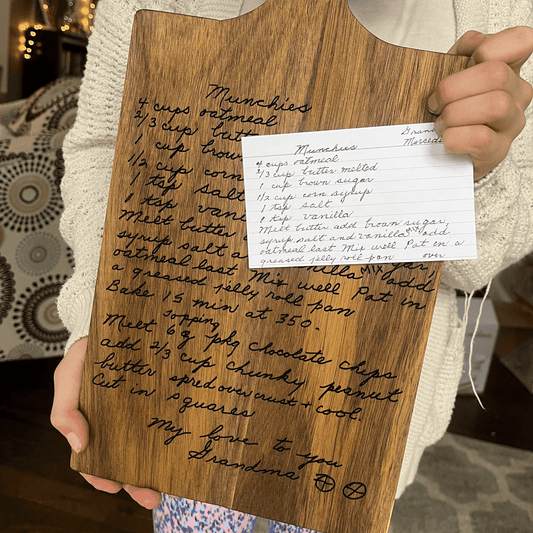 Munchies
4 cups oatmeal
2/3 cup butt
1 cup brow
1/2 cup corn
1 tsp salt
1 tsp vani
Melt butter
syrup salt a
oatmeal last. Mix well Pat in
a greased jelly roll pan
Bake 15 min at 350.
Topping
Melt 6 oz pkg chocolate chips
add 2/3 cup chunky peanut
butter spred over crust + cool.
Cut in squares
My love to you
Grandma
Munchies
4 cups oatmeal
2/3 cup butter melted
1 cup brown sugar
1/2 cup corn syrup
1 tsp salt
1 tsp vanilla
Melt butter add brown sugar,
syrup, salt and vanilla Mix add
oatmeal last Mix well Pat in a
greased jelly roll pan over